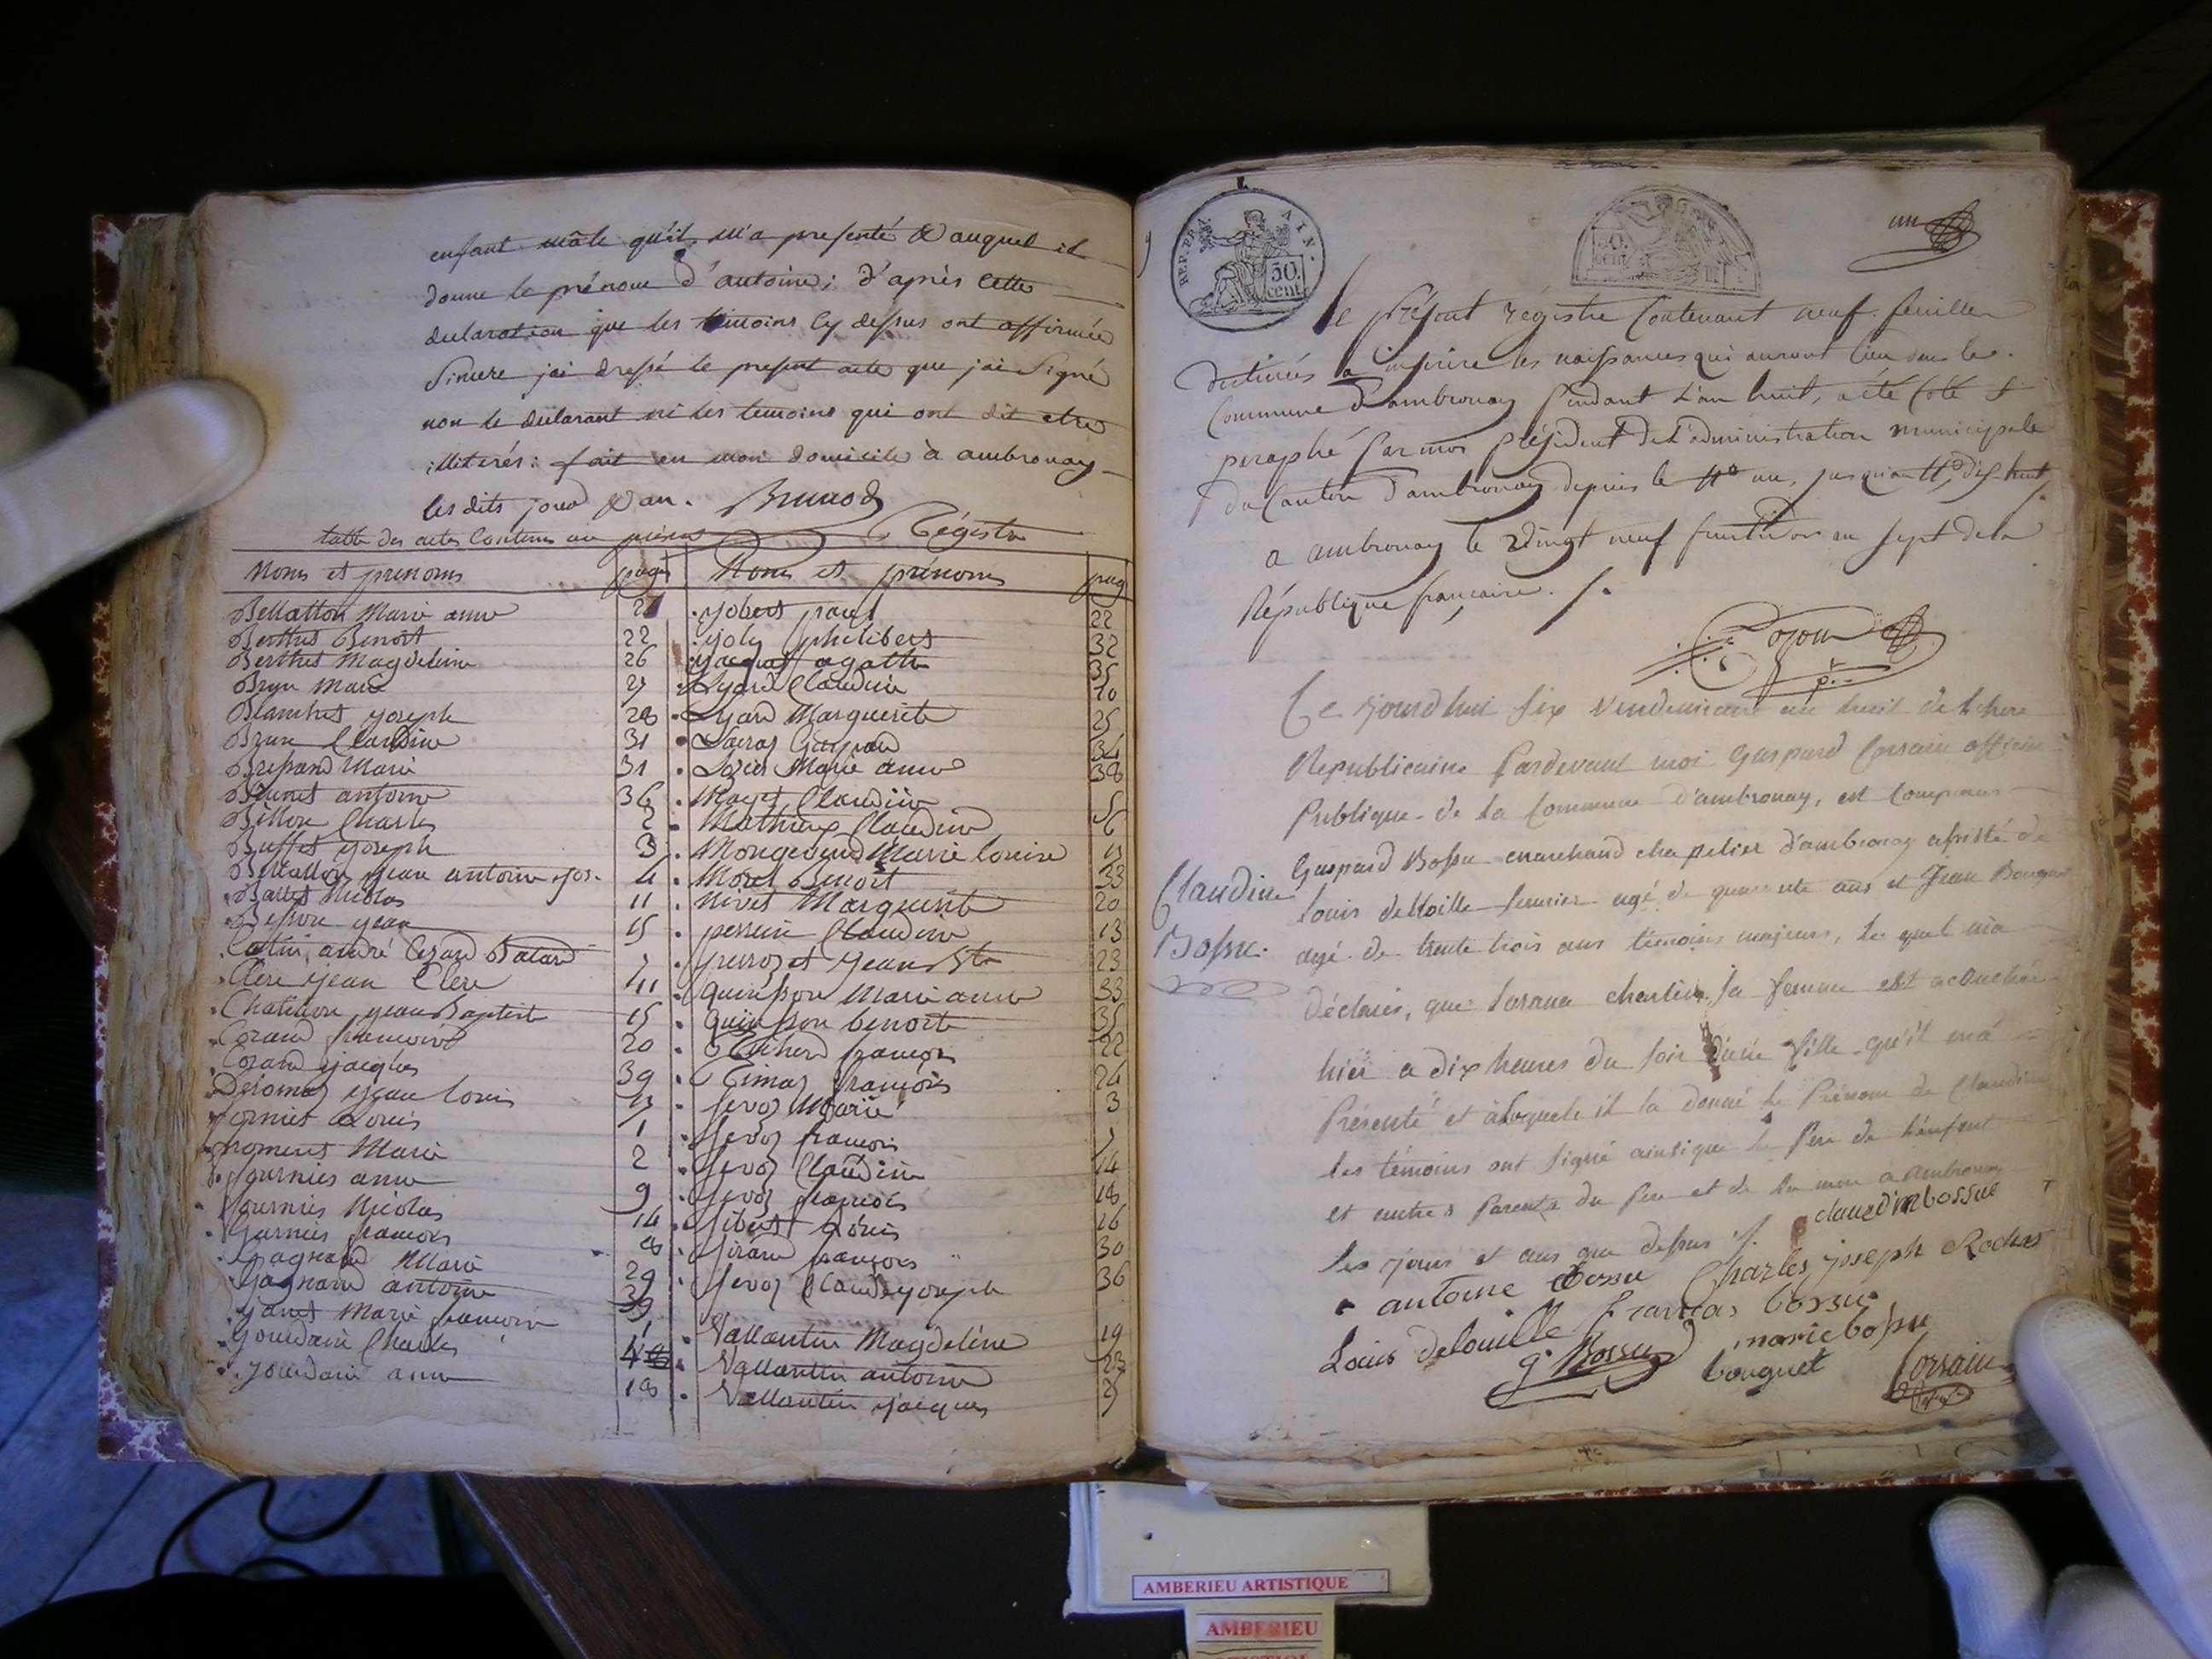 enfant mâle qu'il m'a presenté & auquel il
donne le prénom d'antoine; d'après cette
declaration que les témoins cy dessus ont affirmée
Sincere j'ai dressé le present acte que j'ai Signé
non le déclarant ni les temoins qui ont dit etre
illiterés: fait en mon domicile à ambronay
les dits jour & an. Brunod
table des actes Contenus au présent Régistre
Noms et prenoms pages Noms et prénoms pag
Bellatton Marie anne 21 jobert paul 22
Berthet Benoit 22 joly philibert 32
Berthet Magdeleine 26 jacquet agathe 35
Brun Marie 27 Lyard Claudine 10
Blanchet joseph 28 Lyard Marguerite 25
Brun Claudine 31 Gaspard 34
Bressand Marie 31 Marie anne 38
Brunet antoine 36 Mayet Claudine 5
Billon Charles 2 Mathieux Claudine 6
Buffet joseph 3 Mongevand Marie Louise 13
Bellatton jean antoine jos. 4 Morel Benoit 33
Ballet Nicolas 11 Nivet Marguerite 20
Besson jean 15 perrin Claudine 13
Catin andré Cesard Batard 7 perrozet jean Bte 23
Clere jean Clere 11 quinson Marie anne 33
Chatillon jean Baptiste 15 quinson benoit 35
Corand francoise 20 francois 22
Corand jacques 39 francois 24
jean Louis 13 Servoz Marie 3
fornier Louis 1 Servoz francois 7
froment Marie 2 Servoz Claudine 14
fournier anne 9 Servoz francois 18
fournier Nicolas 14 Sibert Louis 26
Garnier francois 8 Sirand francois 30
Gagnard Marie 29 Servoz Claude joseph 36
Gagnard antoine
janet Marie francoise 39
jourdain Charles 4 Vallantin Magdeleine 19
jourdain anne 18 Vallantin antoine 23
Vallantin jacques
REP. FRA. AIN. 50. cent.
un
Le présent régistre Contenant neuf feuilles
destinées a inscrire les naissances qui auront lieu dans la
Commune d'ambronay pendant l'an huit, a été coté &
paraphé par moi président de l'administration municipale
du Canton d'ambronay depuis le No un, jusqu'a No dix-huit
a ambronay le vingt neuf fructidor an sept de la
République francaise.
Ce jourd'hui six Vendemiaire an huit de l'here
Republicaine Pardevant moi Gaspard Corsain officier
Publique de la Commune d'ambronay, est Comparu
Gaspard Bossu marchand chapelier d'ambronay assisté de
Claudine
Bossu.
Louis deloille serurier agé de quarente ans et Jean Bouguet
agé de trente trois ans témoins majeurs, le quel m'a
déclaré, que Sa femme est acouchée
hier a dix heures du soir d'une fille qu'il m'a
Présenté et à laquele il la donné le Prénom de Claudine
les témoins ont signé ainsi que le Pere de l'énfent
et autres Parents du Pere et de la mere a ambronay
les jours et ans que dessus.
claudin bossue
antoine Bossu Charles joseph Rochas
Louis delouille francois bossu
G. Bossu marie bossu
bouguet Corsain
AMBERIEU ARTISTIQUE
AMBERIEU